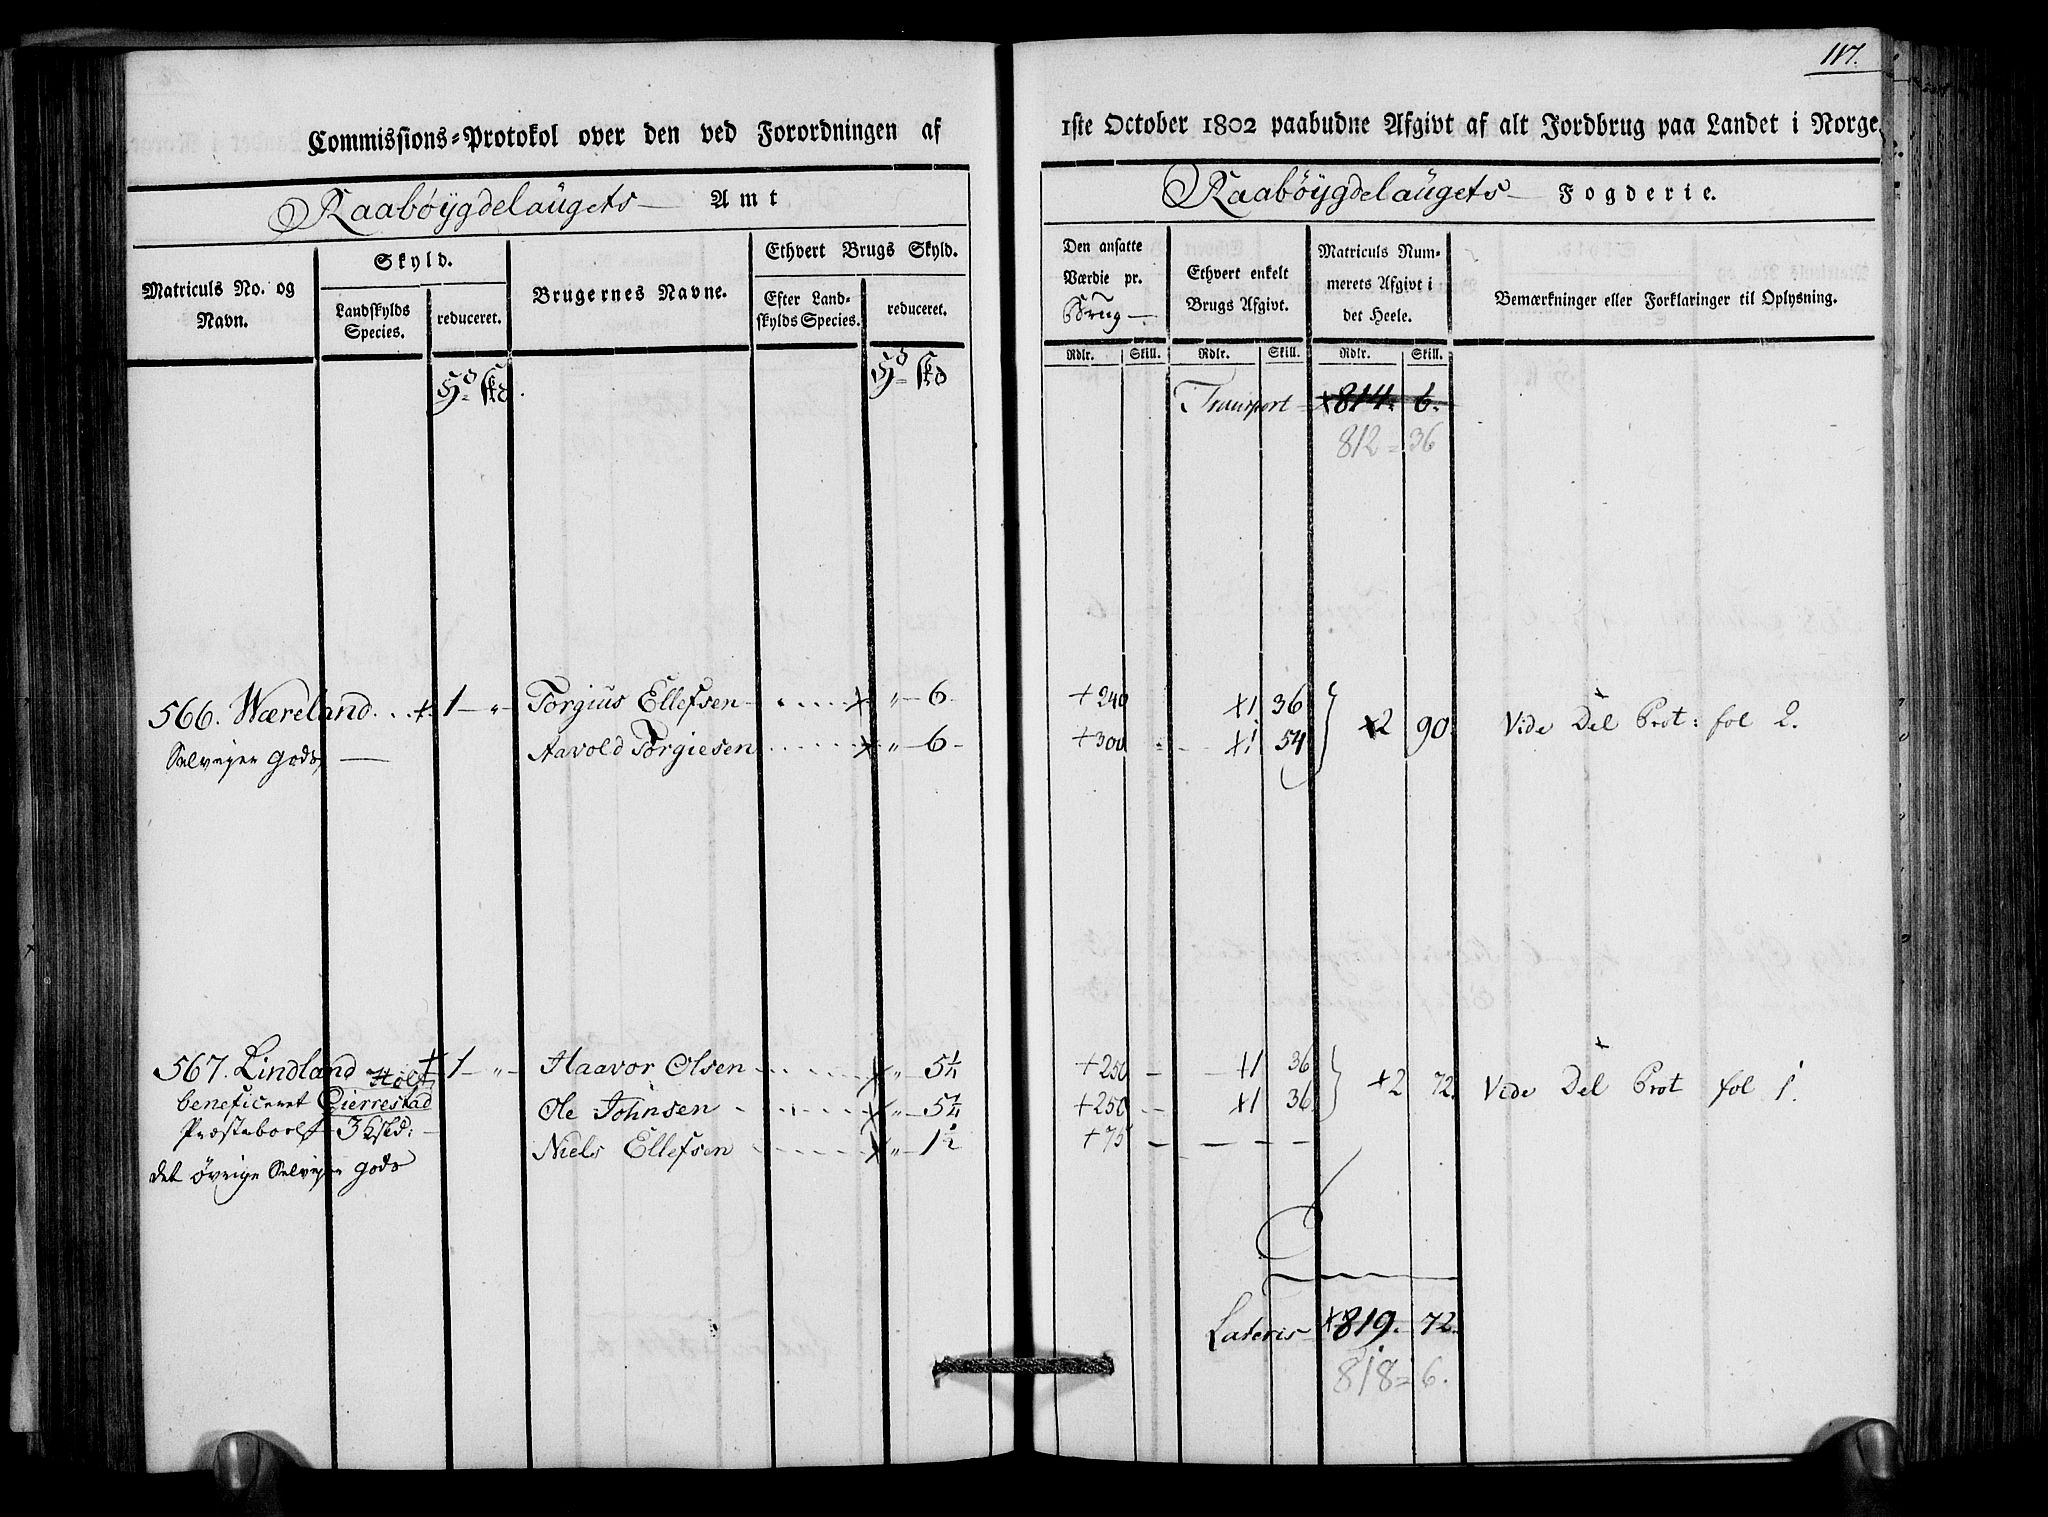 117.
Commissions-Protokol over den ved Forordningen af 1ste October 1802 paabudne Afgivt af alt Jordbrug paa Landet i Norge.
Raabøÿgdelaügets Amt
Raabøÿgdelaügets Fogderie.
Matriculs No. og Navn.
Skyld.
Landskylds Species.
reduceret.
Brugernes Navne.
Ethvert Brugs Skyld.
Efter Landskylds Species.
reduceret.
Den ansatte Værdie pr. Brug
Ethvert enkelt Brugs Afgivt.
Matriculs Nummerets Afgivt i det Heele.
Bemærkninger eller Forklaringer til Oplysning.
Rdlr. Skill. Rdlr. Skill. Rdlr. Skill.
Transport 814. 6.
812 = 36
566. Wæreland. + 1 - „ - Torgius Ellefsen x „ - 6. +240 x1 36 x2 90. Vide Del Prot: fol 2.
Selveyer Gods Aavold Torgiesen x „ - 6 - +300 x1 54
567. Lindland + 1 - „ - Haavor Olsen x „ 5¼ +250 - x1 36 x2 72. Vide Del Prot fol 1.
beneficeret Gierrestad Ole Johnsen x „ 5¼ +250 - x1 36.
Præstebol 3 skd: Niels Ellefsen x „ 1½ +75 - - - -
det øvrige Selveyer Gods
Lateris x819. 72.
818 = 6.